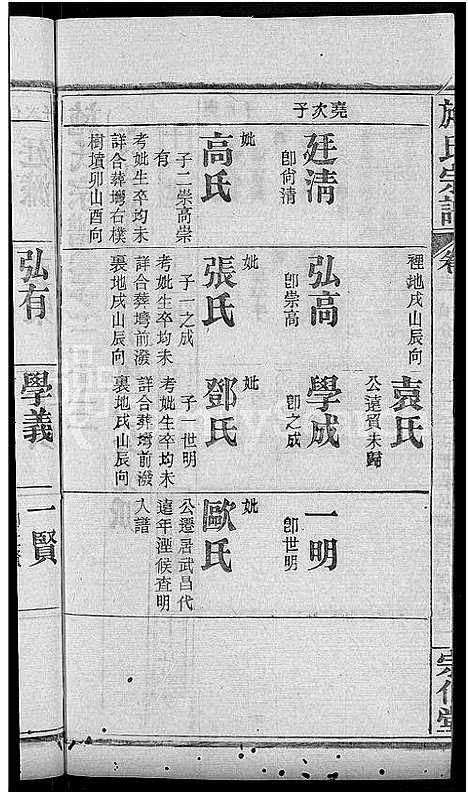 施氏宗譜
卷
宗仁堂
裡地戌山辰向
袁氏
公遠貿未歸
堯次子
廷清
即尙清
妣
高氏
子二崇高崇
有
考妣生卒均未
詳合葬塆右樸
樹墳卯山酉向
弘高
即崇高
妣
張氏
子一之成
考妣生卒均未
詳合葬塆前潑
裏地戌山辰向
學成
卽之成
妣
鄧氏
子一世明
考妣生卒均未
詳合葬塆前潑
裏地戌山辰向
一明
卽世明
妣
歐氏
公遷居武昌代
遠年湮候查明
入譜
弘有
學義
一賢